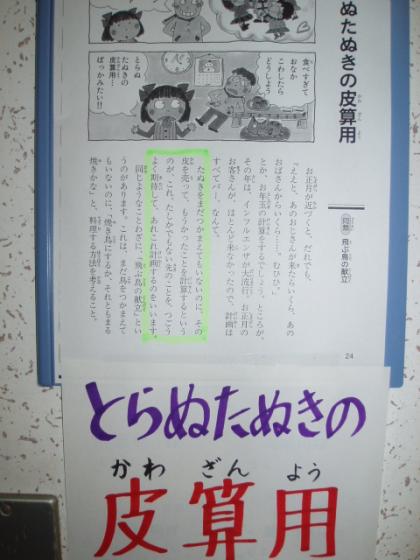 ぬたぬきの皮算用
同類 飛ぶ鳥の献立
食べすぎて
おなか
こわしたら
どうしよう
とらぬ
たぬきの
皮算用…
ばっかみたい!!
お正月が近づくと、だれでも、
「ええと、あのおじさんが来たらいくら、あの
おばさんからいくら……、むひひ。」
とか、お年玉の計算をするでしょう。ところが、
その年は、インフルエンザが大流行。お正月の
お客さんが、ほとんど来なかったので、計画は
すべてパー、なんて。
たぬきをまだつかまえてもいないのに、その
皮を売って、もうかったことを計算するという
のが、これ。たしかでもない先のことを、つごう
よく期待して、あれこれ計画するのをいいます。
同じようなことわざに、「飛ぶ鳥の献立」とい
うのがあります。これは、まだ鳥をつかまえて
もいないのに、「焼き鳥にするか、それともまる
焼きかな」と、料理する方法を考えること。
24
とらぬたぬきの
かわ ざん よう
皮算用